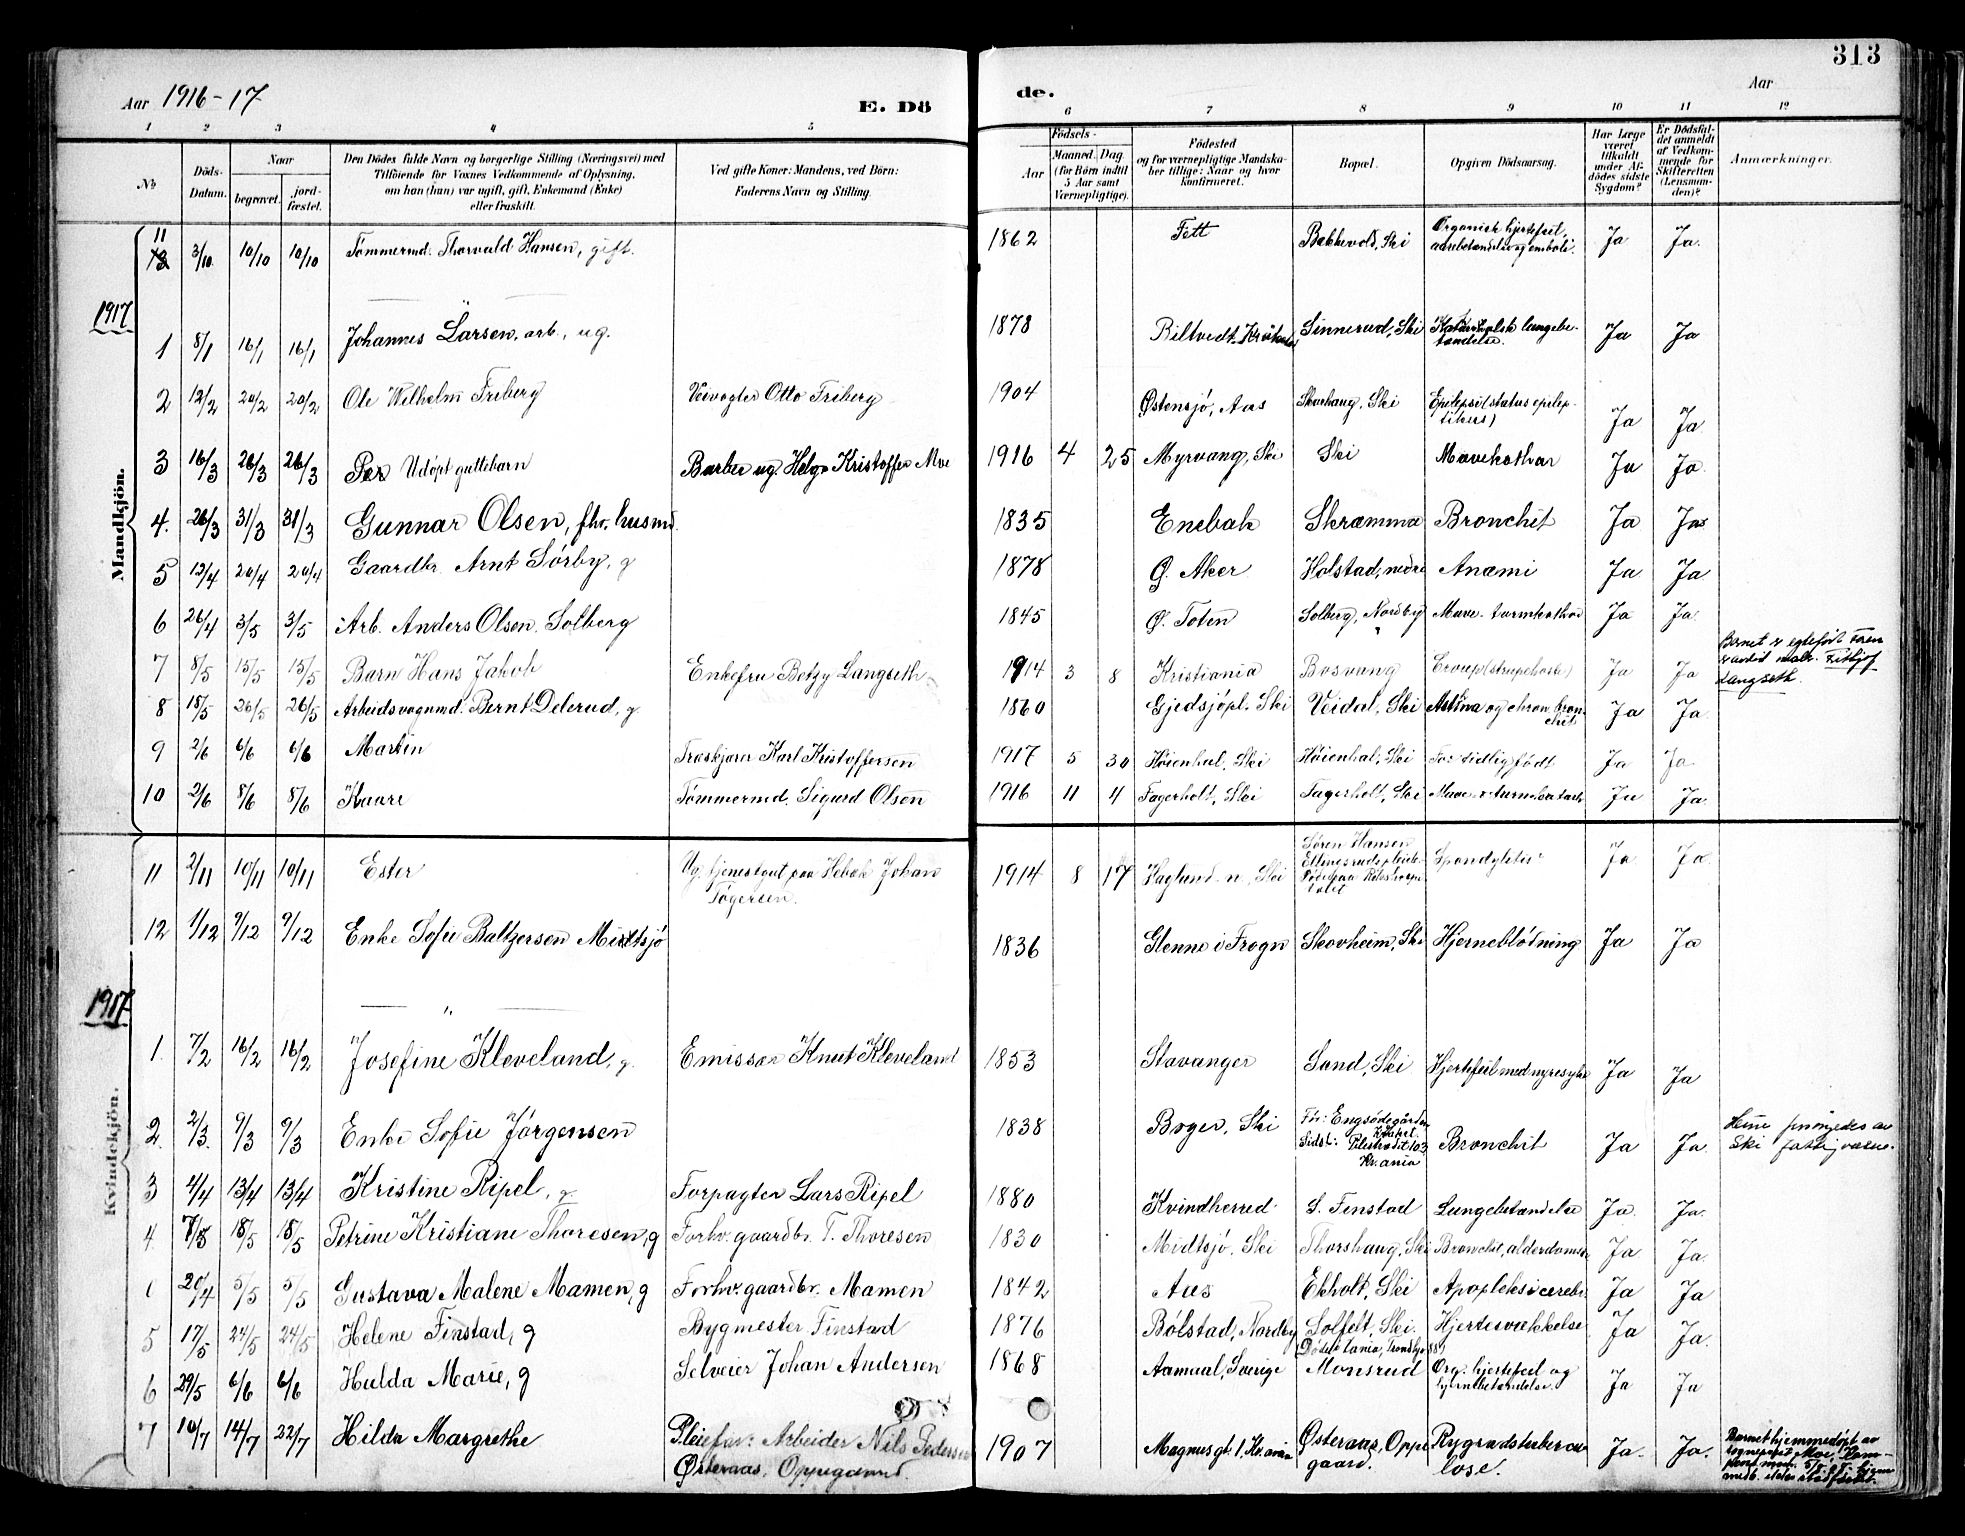 313
Aar 1916-17
E. Dö
de.
Aar
1 2 3 4 5 6 7 8 9 10 11 12
No
Döds-Datum.
Naar
begravet.
jord-fæstet.
Den Dödes fulde Navn og borgerlige Stilling (Næringsvei) med
Tilföiende for Voxnes Vedkommende af Oplysning,
om han (hun) var ugift, gift, Enkemand (Enke)
eller fraskilt.
Ved gifte Koner: Mandens, ved Börn:
Faderens Navn og Stilling.
Födsels-
Aar
Maaned. Dag
(for Börn indtil
5 Aar samt
Værnepligtige).
Födested
og for værnepligtige Mandska-
ber tillige: Naar og hvor
konfirmeret.
Bopæl.
Opgiven Dödsaarsag.
Har Læge
været
tilkaldt
under Af-
dödes sidste
Sygdom?
Er Dödsfal-
det anmeldt
af Vedkom-
mende for
Skifteretten
(Lensman-
den)?
Anmærkninger.
Mandkjön.
11 3/10 10/10 10/10 Tømmermd. Thorvald Hansen, gift. 1862 Fett Bakkevold, Ski Organisk hjertefeil, Ja Ja.
1917
1 8/1 16/1 16/1 Johannes Larsen, arb., ug. 1878 Biltvedt, Sinnerud, Ski Katarralsk lungebe-
tændelse. Ja Ja
2 12/2 20/2 20/2 Ole Wilhelm Friberg Veivogter Otto Friberg 1904 Østensjø, Aas Skovhaug, Ski Epilepsi (status epilep-
tikers) Ja Ja.
3 16/3 26/3 26/3 Per Udøpt guttebarn Barber ug. Helge Kristoffer Moe 1916 4 25 Myrvang, Ski Ski Mavekathar Ja Ja.
4. 26/3 31/3 31/3 Gunnar Olsen, fhv. husmd. 1835 Enebak Skræmma Bronchit Ja Ja
5 12/4 20/4 20/4 Gaardbr. Arnt Sörby, g 1878 Ø. Aker Holstad, nedre Anæmi Ja Ja
6 26/4 3/5 3/5 Arb. Anders Olsen Solberg 1845 Ø. Toten Solberg, Nordby Mave-tarmkathar Ja Ja.
7 8/5 15/5 15/5 Barn Hans Jakob Enkefru Betzy Langseth 1914 3 8 Kristiania Bosvang Croup (strupehoste) Ja Ja Barnet er egtefødt Faren
Fritjof
Langseth.
8 18/5 26/5 26/5 Arbeidsvognmd. Bernt Delerud, g. 1860 Gjedsjöpl. Ski Veidal, Ski Astma og chron. bron-
chit Ja Ja.
9 2/6 6/6 6/6 Martin Træskjærer Karl Kristoffersen 1917 5 30 Høienhal, Ski Høienhal, Ski For tidlig født Ja Ja
10 2/6 8/6 8/6 Kaare Tømmermd. Sigurd Olsen 1916 11 4 Fagerholt, Ski Fagerholt, Ski Mave- tarmkatarh Ja Ja.
Kvindekjön.
11 2/11 10/11 10/11 Ester Ug. tjenestegut paa Hebæk Johan
Tøgersen. 1914 8 17 Haglund n., Ski Søren Hansen
Spondylitis Ja Ja
12 1/12 9/12 9/12 Enke Sofie Baltzersen Midtsjø 1836 Glenne i Frogn Skovheim, Ski Hjerneblödning Ja Ja
1917
1. 7/2 16/2 16/2 Josefine Kleveland, g. Emissær Knut Kleveland 1853 Stavanger Sand, Ski Hjertefeil med nyresyke Ja Ja
2. 2/3. 9/3 9/3 Enke Sofie Jørgensen 1838 Bøger, Ski Før: Engsødegården
Sidst: Pilestrædet 103
Kr.ania Bronchit Ja Ja. Ski fattigvæsen.
3 4/4 13/4 13/4 Kristine Ripel, g Forpagter Lars Ripel 1880 Kvindherred S. Finstad Lungebetændelse Ja. Ja.
4. 7/5 18/5 18/5 Petrine Kristiane Thoresen, g Forhv. gaardbr. T. Thoresen 1830 Midtsjö, Ski Thorshaug, Ski Bronchit, alderdomssv Ja Ja.
20/4 5/5 5/5 Gustava Malene Mamen, g Forhv. gaardbr. Mamen 1842 Aas Ekholt, Ski Apopleksi cerebri Ja Ja
5 17/5 24/5 24/5 Helene Finstad, g Bygmester Finstad 1876 Bölstad, Nordby Solfelt, Ski. Hjertesvækkelse Ja Ja.
6 29/5 6/6 6/6 Hulda Marie, g Selveier Johan Andersen 1868 Aamaal, Sverige Monsrud Org. hjertefeil og Ja Ja
7 10/7 14/7 22/7 Hilda Margrethe Pleiefar: Arbeider Nils Pedersen
Østeraas, Oppegaard. 1907 Magnusgt. 1, Kr.ania Østeraas, Oppe-
gaard. Rygradstuberku-
lose. Ja. Ja. Barnet hjemmedøpt av